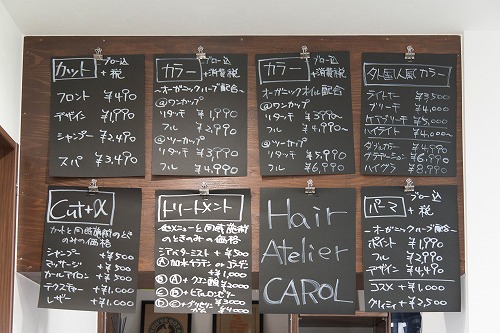 カット ブロー込
+税
フロント ¥490
デザイン ¥1,990
シャンプー ¥2,490
スパ ¥3,490
カラー ブロー込
+消費税
~オーガニックハーブ配合~
@ワンカップ
リタッチ ¥1,990
フル ¥2,990
@ツーカップ
リタッチ ¥3,990
フル ¥4,990
カラー ブロー込
+消費税
オーガニックオイル配合
@ワンカップ
リタッチ ¥3,990~
フル ¥4,990~
@ツーカップ
リタッチ ¥5,990
フル ¥6,990
外国人風カラー
ライトナー ¥3,500
ブリーチ ¥4,000
ケアブリーチ ¥5,000
ハイライト ¥4,000~
ダブルカラー ¥4,990
グラデーション ¥6,990
ハイグラ ¥8,990
Cut+α
カットと同時施術のとき
のみの価格
シャンプー +¥500
マッサージ +¥500
カールアイロン +¥500
テクスチャー +¥1,000
レザー +¥1,000
トリートメント
他メニューと同時施術
のときのみの価格
シアバターミスト +¥500
Ⓐ加水ケラチン or コラーゲン
+¥1,000
Ⓑ Ⓐ+クエン酸 ¥2000
Ⓒ Ⓑ+ヒアルロン
¥3000
Ⓓ Ⓒ+
¥4000
Hair
Atelier
CAROL
パーマ ブロー込
+税
~オーガニックハーブ配合~
ポイント ¥1,990
フル ¥2,990
デザイン ¥4,490
コスメ +¥1,000
クリィミィ +¥2,500